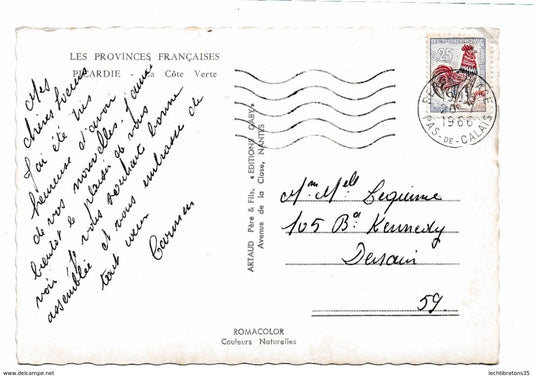 LES PROVINCES FRANÇAISES
PICARDIE - La Côte Verte
Mes
chères
J'ai été très
heureuse d'avoir
de vos nouvelles. J'aurai
bientôt le plaisir de vous
voir je vous souhaite bonne
assemblée et vous embrasse de
tout cœur
Carmen
ARTAUD Père & Fils, «EDITIONS GABY»
Avenue de la Close, NANTES
0,25
PAS-DE-CALAIS
1966
105 Bd Kennedy
Denain
59.
ROMACOLOR
Couleurs Naturelles
delcampe.net
lechtibretons35